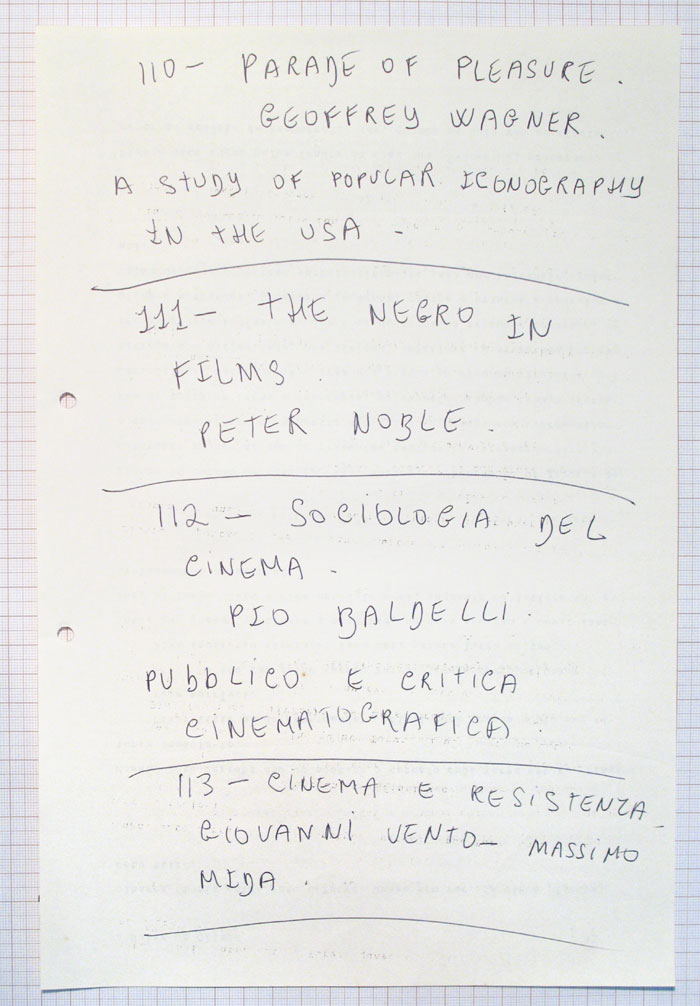 110 - PARADE OF PLEASURE.
GEOFFREY WAGNER.
A STUDY OF POPULAR ICONOGRAPHY
IN THE USA -
111 - THE NEGRO IN
FILMS.
PETER NOBLE.
112 - SOCIOLOGIA DEL
CINEMA -
PIO BALDELLI.
PUBBLICO E CRITICA
CINEMATOGRAFICA.
113 - CINEMA E RESISTENZA -
GIOVANNI VENTO - MASSIMO
MIDA.